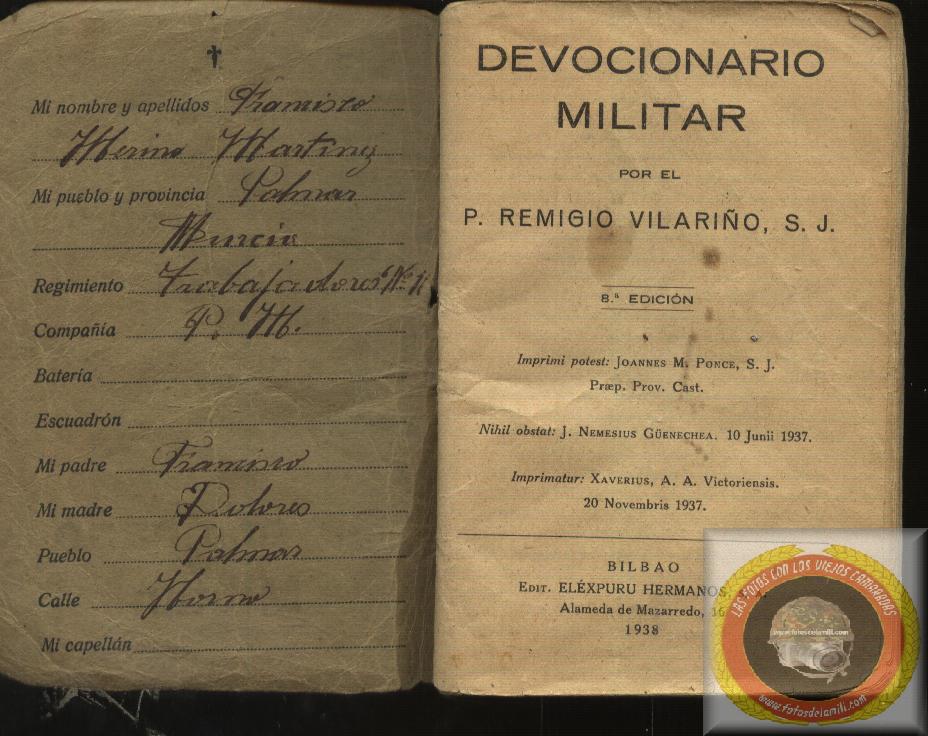 Mi nombre y apellidos Francisco
Merino Martinez
Mi pueblo y provincia Palmar
Murcia
Regimiento Trabajadores Nº 11
Compañía P. M.
Batería
Escuadrón
Mi padre Francisco
Mi madre Dolores
Pueblo Palmar
Calle Horno
Mi capellán
DEVOCIONARIO
MILITAR
POR EL
P. REMIGIO VILARIÑO, S. J.
8.ª EDICIÓN
Imprimi potest: JOANNES M. PONCE, S. J.
Præp. Prov. Cast.
Nihil obstat: J. NEMESIUS GÜENECHEA. 10 Junii 1937.
Imprimatur: XAVERIUS, A. A. Victoriensis.
20 Novembris 1937.
BILBAO
EDIT. ELÉXPURU HERMANOS,
Alameda de Mazarredo, 16
1938
LAS FOTOS CON LOS VIEJOS CAMARADAS
www.fotosdelamili.com
www.fotosdelamili.com